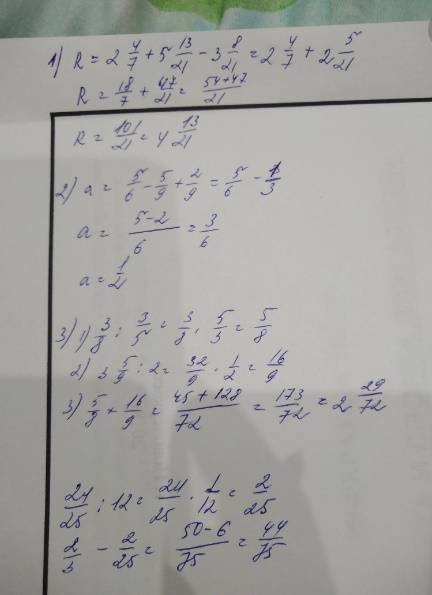 1) R = 2 4/7 + 5 13/21 - 3 8/21 = 2 4/7 + 2 5/21
R = 18/7 + 47/21 = 54+47/21
R = 101/21 = 4 13/21
2) a = 5/6 - 5/9 + 2/9 = 5/6 - 1/3
a = 5-2/6 = 3/6
a = 1/2
3) 1) 3/8 : 3/5 = 3/8 · 5/3 = 5/8
2) 3 5/9 : 2 = 32/9 · 1/2 = 16/9
3) 5/8 + 16/9 = 45+128/72 = 173/72 = 2 29/72
24/25 : 12 = 24/25 · 1/12 = 2/25
2/3 - 2/25 = 50-6/75 = 44/75